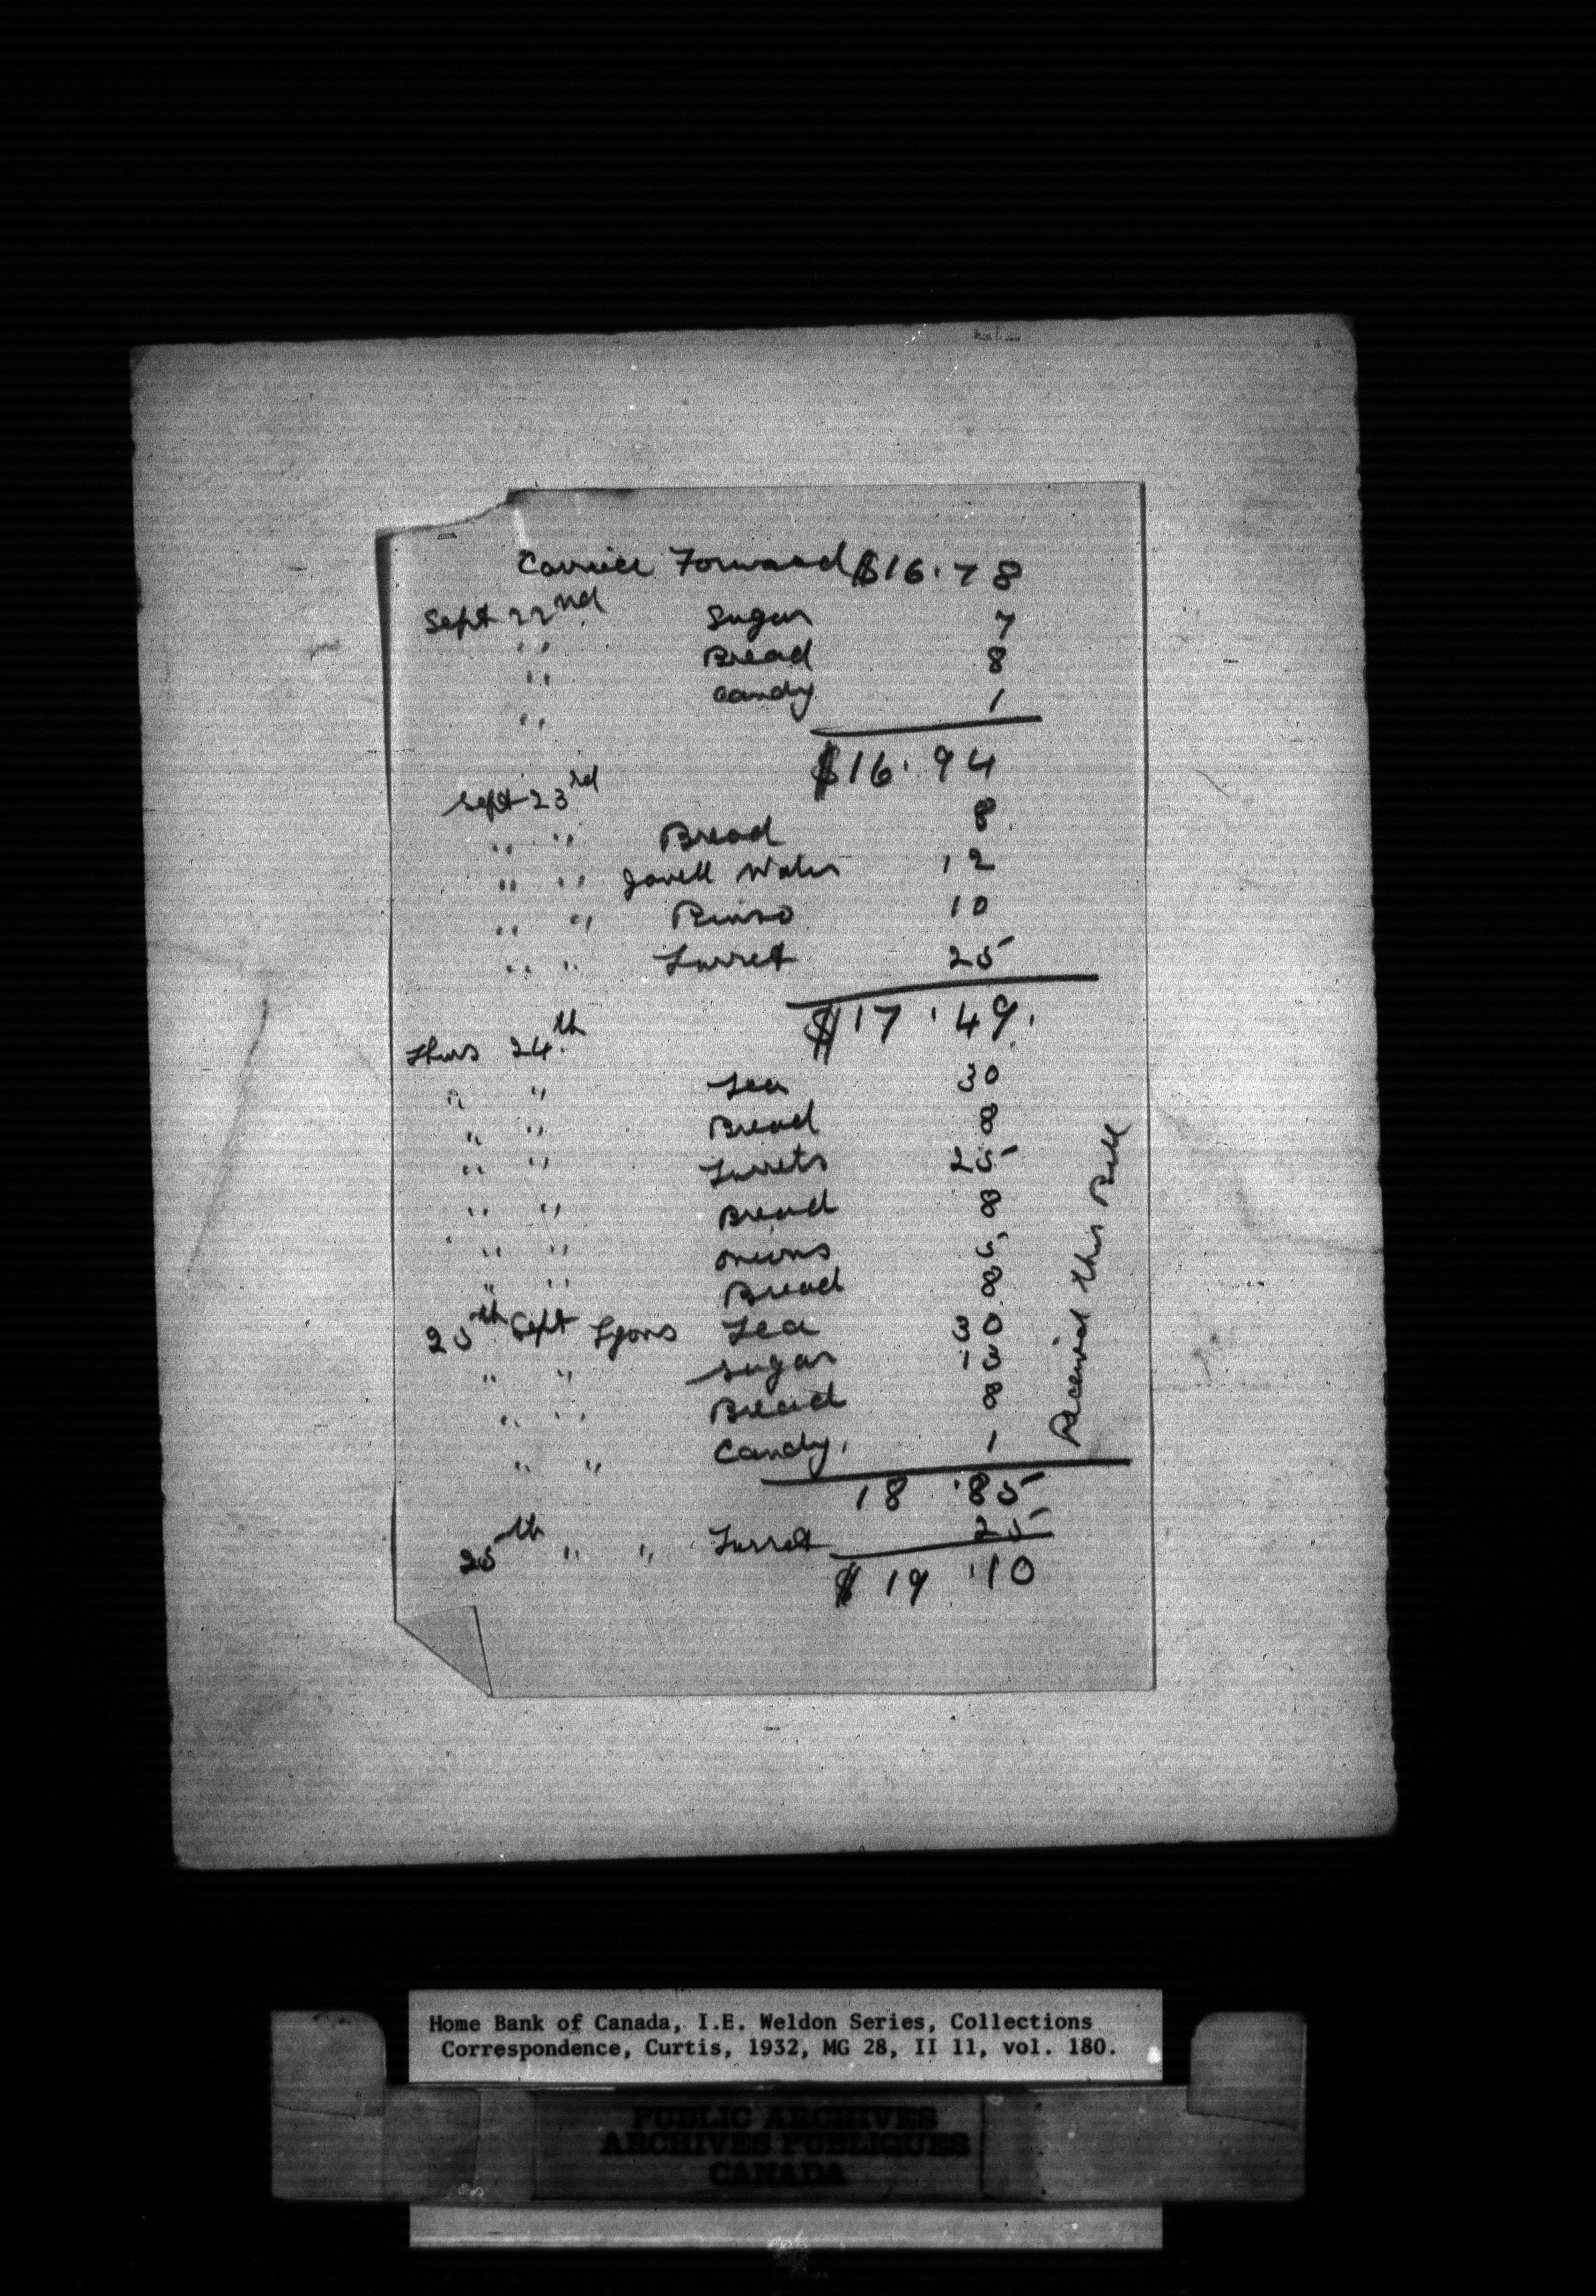 Carried Forward $16.78
Sept 22nd Sugar 7
" " Bread 8
" " Candy 1
" "
$16.94
Sept 23rd
" " Bread 8
" " Javell Water 12
" " Rinso 10
" " Turret 25
$17.49.
Thurs 24th
" " Tea 30
" " Bread 8
" " Turrets 25
" " Bread 8
" " onions 5
" " Bread 8
25th Sept Lyons Tea 30
" " sugar 13
" " Bread 8
" " Candy, 1
18.85
25th " " Turret 25
$19.10
Received this Bill
Home Bank of Canada, I.E. Weldon Series, Collections
Correspondence, Curtis, 1932, MG 28, II 11, vol. 180.
PUBLIC ARCHIVES
ARCHIVES PUBLIQUES
CANADA